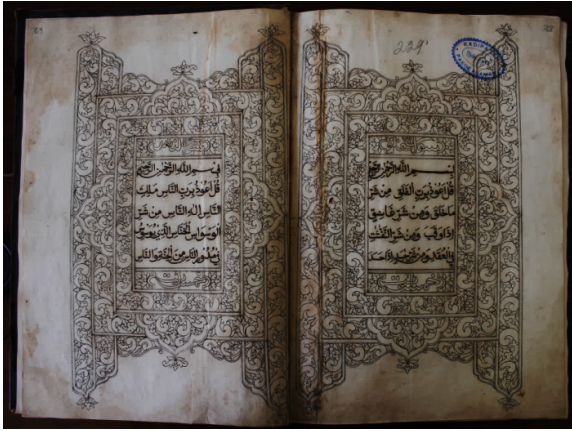 229
بسم الله الرحمن الرحيم
قل اعوذ برب الفلق من شر
ما خلق ومن شر غاسق
اذا وقب ومن شر النفثت
في العقد ومن شر حاسد اذا حسد
بسم الله الرحمن الرحيم
قل اعوذ برب الناس ملك
الناس اله الناس من شر
الوسواس الخناس الذي يوسوس
في صدور الناس من الجنة والناس